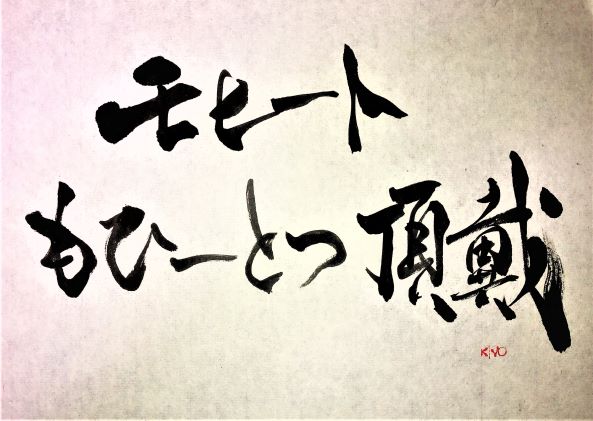 モヒート
もひーとつ頂戴
KIYO